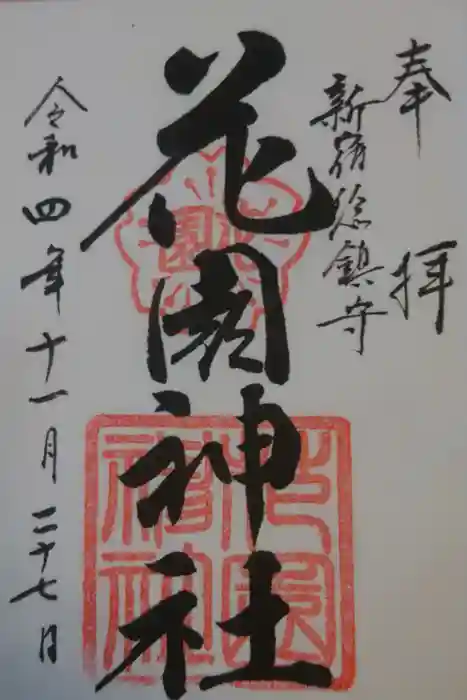 奉拝
新宿総鎮守
花園神社
花園
花園神社
令和四年十一月二十七日